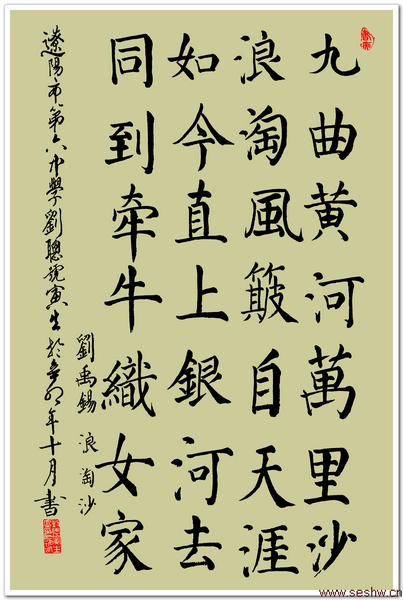 九曲黄河萬里沙
浪淘風簸自天涯
如今直上銀河去
同到牽牛織女家
劉禹錫 浪淘沙
遼陽市第六中學劉聰號寅生於辛卯年十月書
www.seshw.cn